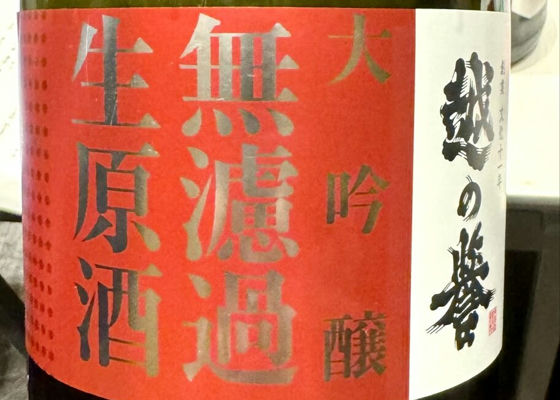 創業 文化十一年
越の誉
大吟醸
無濾過
生原酒